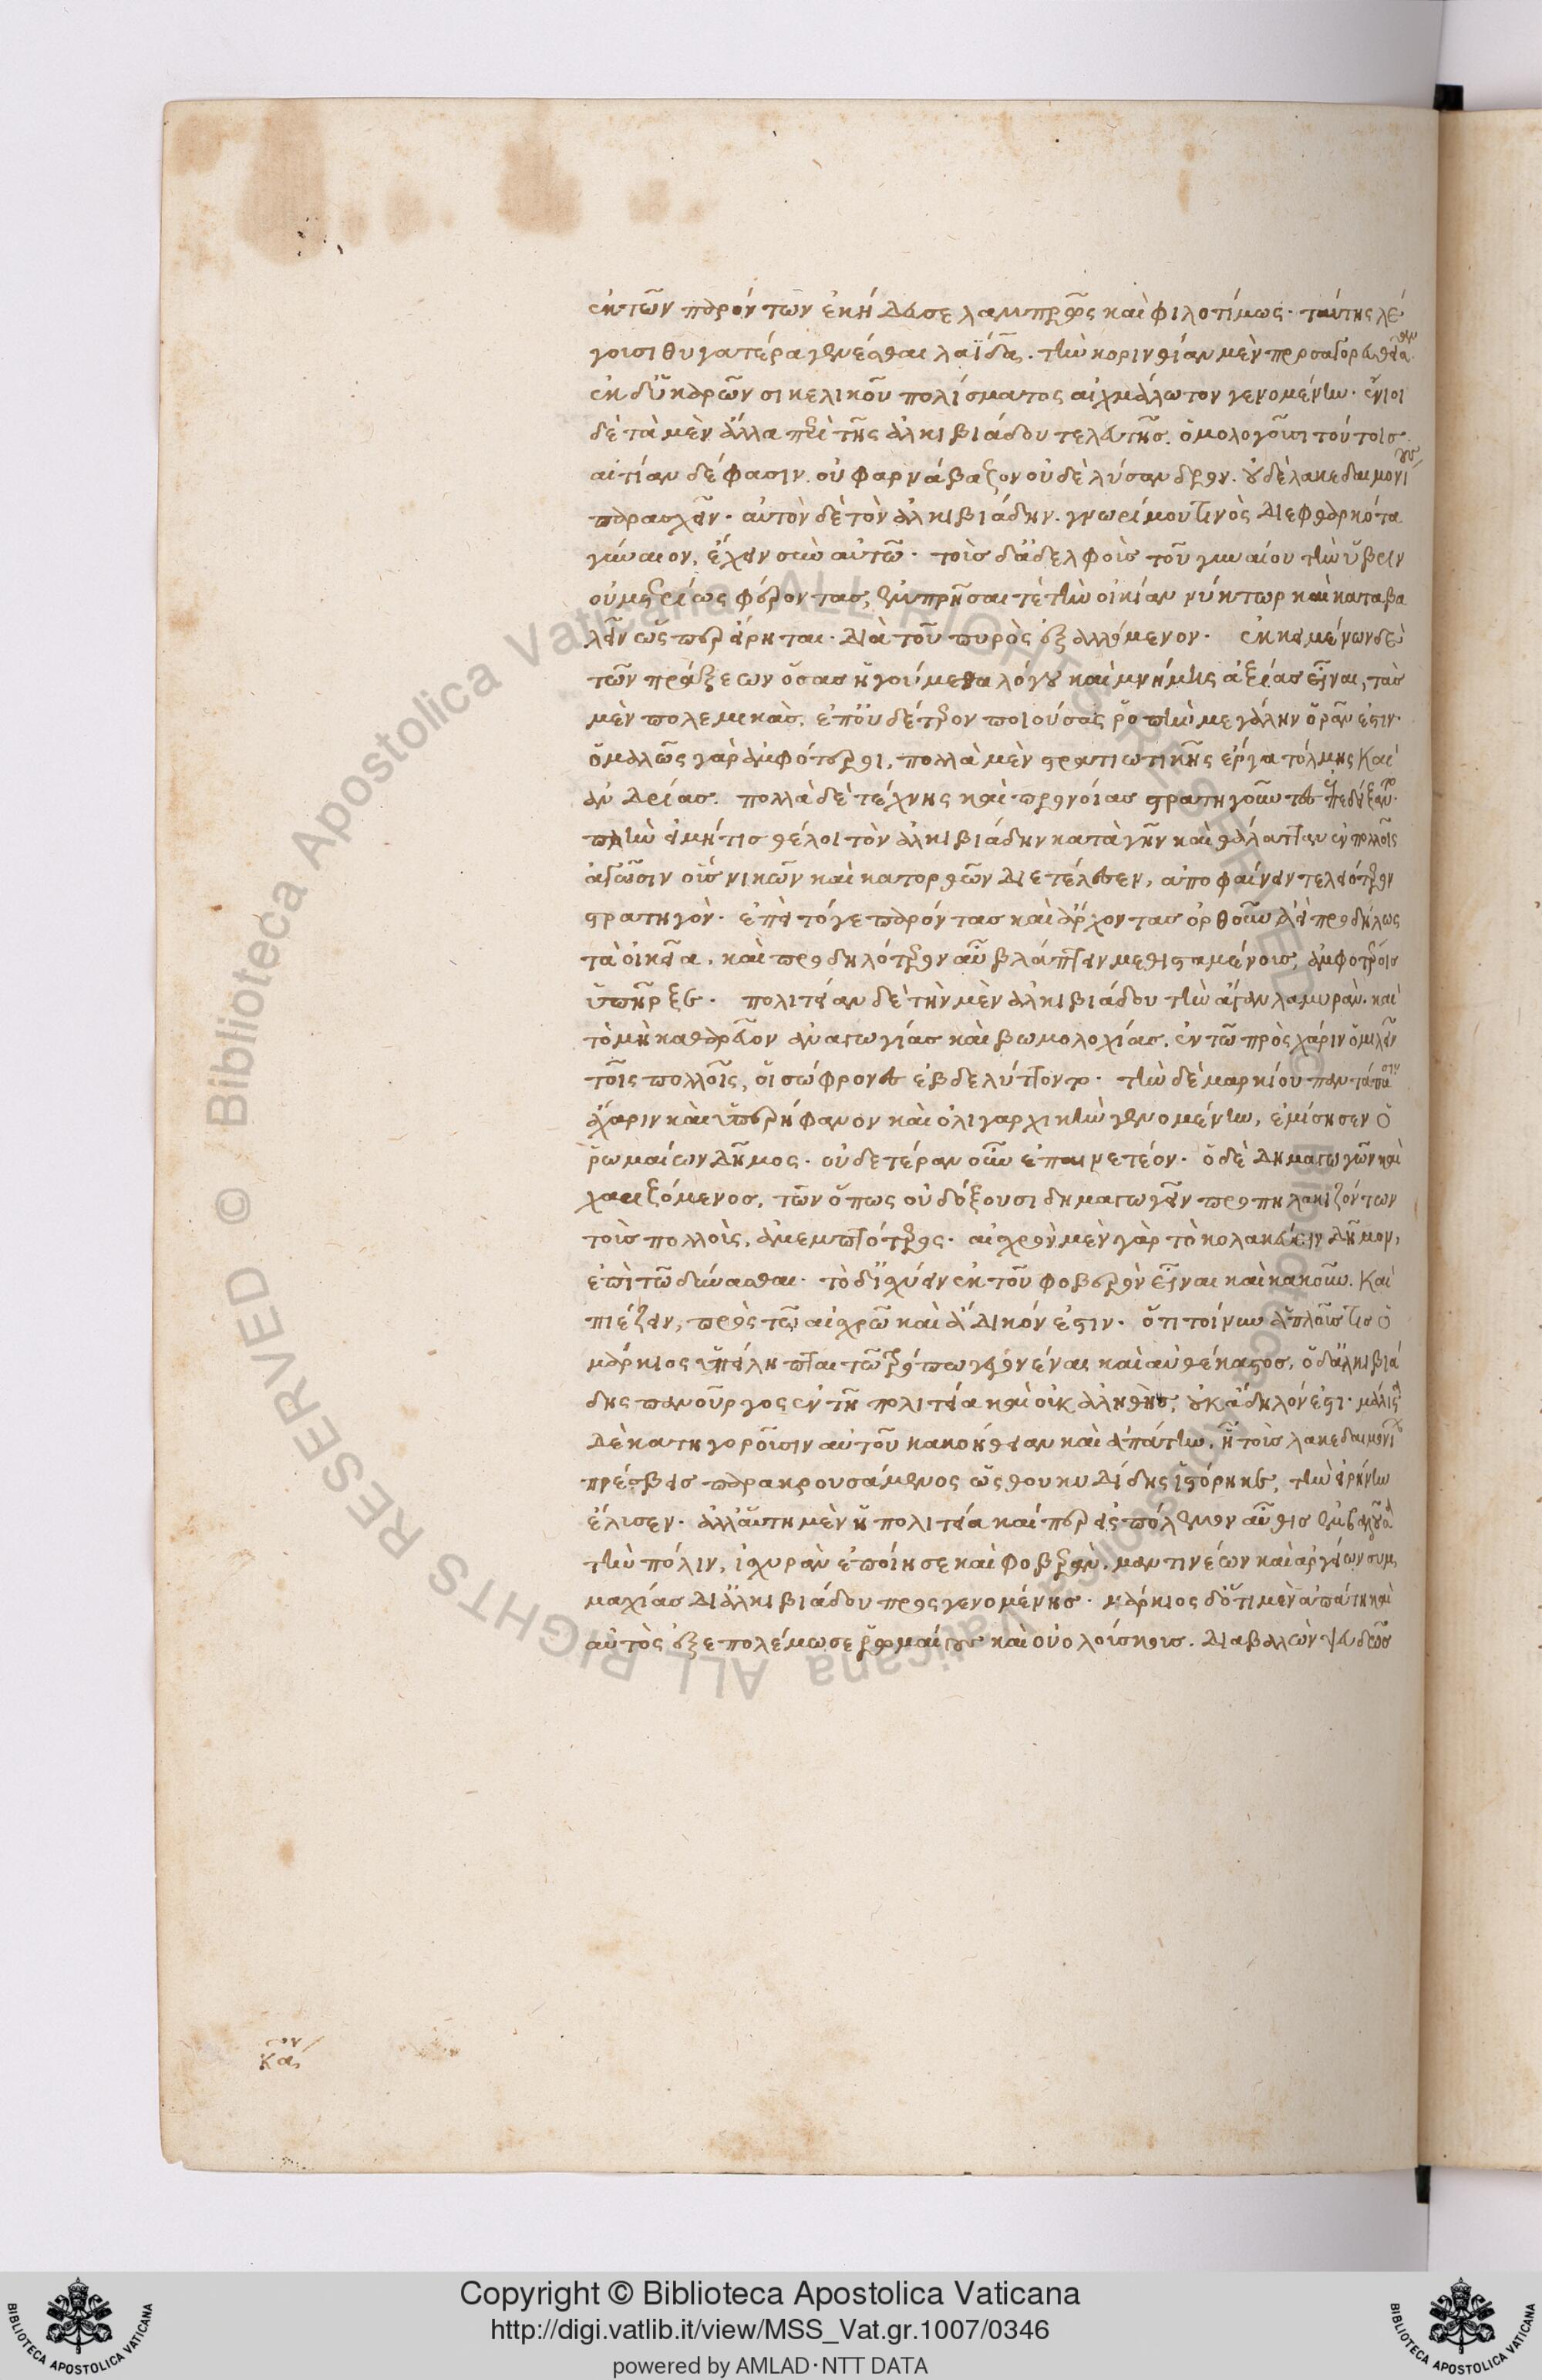 ἐκ τῶν παρόντων ἐκήδευσε λαμπρῶς καὶ φιλοτίμως. ταύτης λέ
γουσι θυγατέρα γενέσθαι λαΐδα. τὴν κορινθίαν μὲν προσαγορευθεῖσαν
ἐκ δὲ ὑκάρων σικελικοῦ πολίσματος αἰχμάλωτον γενομένην. ἔνιοι
δὲ τὰ μὲν ἄλλα περὶ τῆς ἀλκιβιάδου τελευτῆς. ὁμολογοῦσι τούτοις.
αἰτίαν δέ φασιν. οὐ φαρνάβαζον οὐδὲ λύσανδρον. οὐδὲ λακεδαιμονίους
παρασχεῖν. αὐτὸν δὲ τὸν ἀλκιβιάδην. γνωρίμου τινὸς διεφθαρκότα
γύναιον, ἔχειν σὺν αὐτῶ. τοὺς δ' ἀδελφοὺς τοῦ γυναίου τὴν ὕβριν
οὐ μετρίως φέροντας, ἐμπρῆσαί τε τὴν οἰκίαν νύκτωρ καὶ καταβα
λεῖν ὥσπερ εἴρηται. διὰ τοῦ πυρὸς ἐξαλλόμενον. ἐκκειμένων δὲ
τῶν πράξεων ὅσας ἡγούμεθα λόγου καὶ μνήμης ἀξίας εἶναι, τὰς
μὲν πολεμικὰς. ἐπ' οὐδέτερον ποιούσας ῥοπὴν μεγάλην ὁρᾶν ἐστιν.
ὁμαλῶς γὰρ ἀμφότεροι, πολλὰ μὲν στρατιωτικῆς ἔργα τόλμης καὶ
ἀνδρείας. πολλὰ δὲ τέχνης καὶ προνοίας στρατηγοῦντες ἐπεδείξαντο.
πλὴν εἰ μή τις θέλοι τὸν ἀλκιβιάδην κατὰ γῆν καὶ θάλατταν ἐν πολλοῖς
ἀγῶσιν οὓς νικῶν καὶ κατορθῶν διετέλεσεν, ἀποφαίνειν τελειότερον
στρατηγὸν. ἐπεὶ τό γε παρόντας καὶ ἄρχοντας ὀρθοῦν ἀεὶ προδήλως
τὰ οἰκεῖα. καὶ προδηλότερον αὖ βλάπτειν μεθισταμένους, ἀμφοτέροις
ὑπῆρξε. πολιτείαν δὲ τὴν μὲν ἀλκιβιάδου τὴν ἄγαν λαμυρὰν. καὶ
τὸ μὴ καθαρεῦον ἀναγωγίας καὶ βωμολοχίας. ἐν τῶ πρὸς χάριν ὁμιλεῖν
τοῖς πολλοῖς, οἱ σώφρονες ἐβδελύττοντο. τὴν δὲ μαρκίου παντάπασιν
ἄχαριν καὶ ὑπερήφανον καὶ ὀλιγαρχικὴν γενομένην, ἐμίσησεν ὁ
ῥωμαίων δῆμος. οὐδετέραν οὖν ἐπαινετέον. ὁ δὲ δημαγωγῶν καὶ
χαριζόμενος, τῶν ὅπως οὐ δόξουσι δημαγωγεῖν προπηλακιζόντων
τοὺς πολλοὺς, ἀμεμπτότερος. αἰσχρὸν μὲν γὰρ τὸ κολακεύειν δῆμον,
ἐπὶ τῶ δύνασθαι. τὸ δ' ἰσχύειν ἐκ τοῦ φοβερὸν εἶναι καὶ κακοῦν. καὶ
πιέζειν, πρὸς τῶ αἰσχρῶ καὶ ἄδικόν ἐστιν. ὅτι τοίνυν ἁπλοῦς τις ὁ
μάρκιος ὑπείληπται τῶ τρόπω γεγονέναι καὶ αὐθέκαστος, ὁ δ' ἀλκιβιά
δης πανοῦργος ἐν τῆ πολιτεία καὶ οὐκ ἀληθὴς, οὐκ ἄδηλόν ἐστι. μάλιστα
δὲ κατηγοροῦσιν αὐτοῦ κακοήθειαν καὶ ἀπάτην, ἧ τοὺς λακεδαιμονίων
πρέσβεις παρακρουσάμενος ὡς θουκυδίδης ἱστόρηκε, τὴν εἰρήνην
ἔλυσεν. ἀλλ' αὕτη μὲν ἡ πολιτεία καίπερ εἰς πόλεμον αὖθις ἐμβαλοῦσα
τὴν πόλιν, ἰσχυρὰν ἐποίησε καὶ φοβερὰν, μαντινέων καὶ ἀργείων συμ
μαχίας δι' ἀλκιβιάδου προσγενομένης. μάρκιος δ' ὅτι μὲν ἀπάτη καὶ
αὐτὸς ἐξεπολέμωσε ῥωμαίους καὶ οὐολούσκους. διαβαλὼν ψευδῶς
Copyright © Biblioteca Apostolica Vaticana
http://digi.vatlib.it/view/MSS_Vat.gr.1007/0346
powered by AMLAD·NTT DATA
© Biblioteca Apostolica Vaticana ALL RIGHTS RESERVED
© Biblioteca Apostolica Vaticana ALL RIGHTS RESERVED
BIBLIOTECA APOSTOLICA VATICANA
BIBLIOTECA APOSTOLICA VATICANA